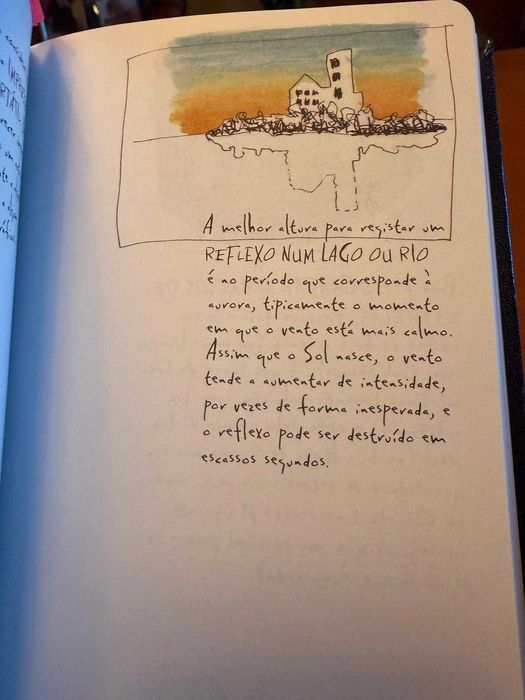 A melhor altura para registar um
REFLEXO NUM LAGO OU RIO
é no período que corresponde à
aurora, tipicamente o momento
em que o vento está mais calmo.
Assim que o Sol nasce, o vento
tende a aumentar de intensidade,
por vezes de forma inesperada, e
o reflexo pode ser destruído em
escassos segundos.